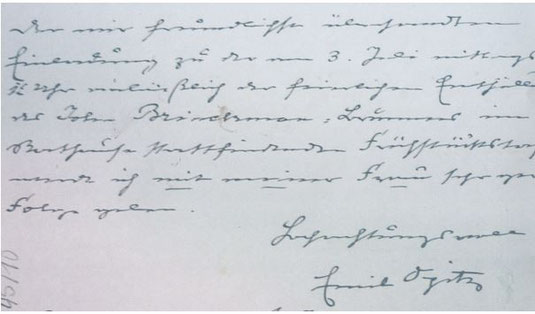 der mir freundlichst übersandten
Einladung zu der am 3. Juli mittags
12 Uhr anläßlich der feierlichen Enthüll
des John Brinckman-Brunnens im
Rathause stattfindenden Frühstückstaf
werde ich mit meiner Frau sehr ger
Folge geben.
Hochachtungsvoll
Emil Opitz